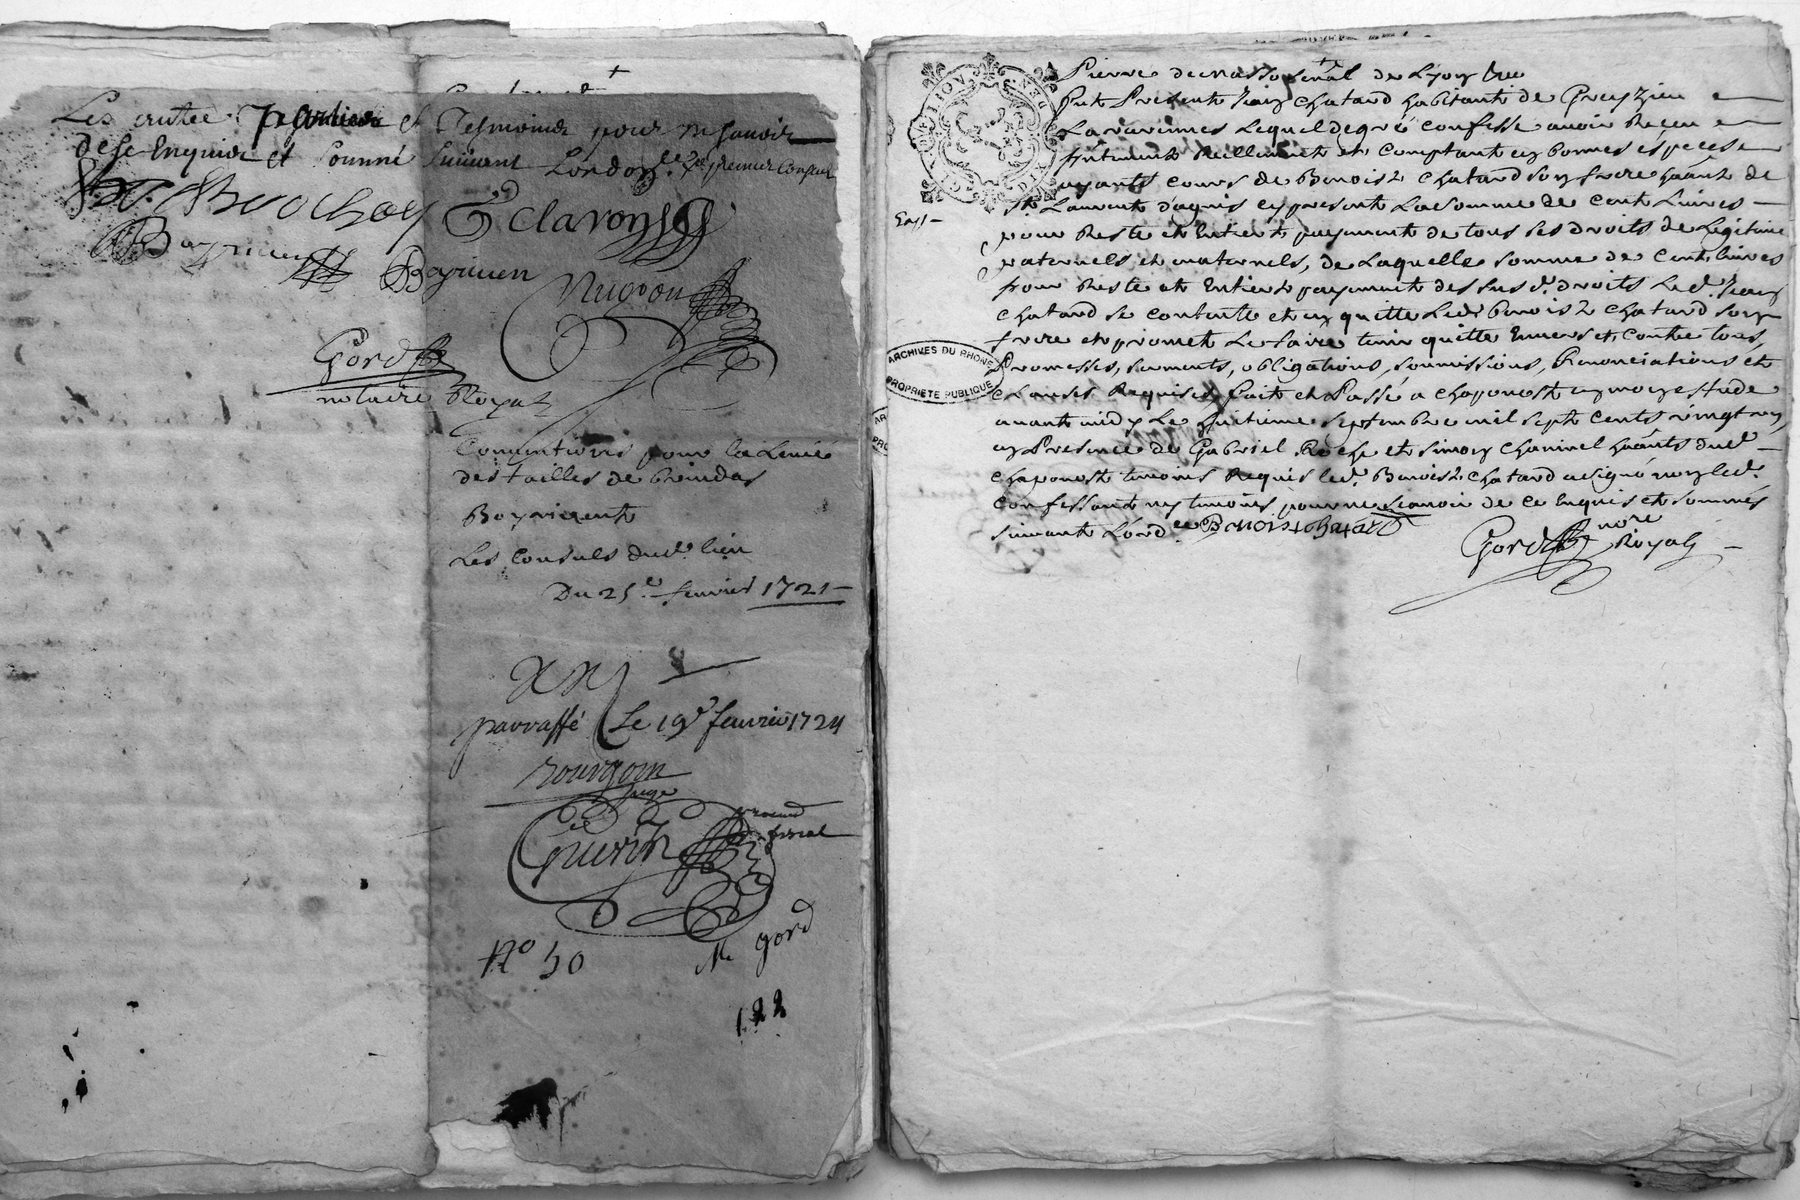 Les autres parties et Tesmoings pour ne scavoir
de ce Enquis et sommé suivant Lordon.ce Le premier Consul
Clavon
Bayrieu
Bayrieu
Gord
notaire Royal
Conventions pour la Levée
des tailles de Brindas
Boyrieu
Les Consuls dud. lieu
Du 25.e fevrier 1721
parraffé Le 19e fevrier 1724
Bourgoin
juge
Guerin procureur
fiscal
No 50
Me gord
122
Pierre de Masso Senal de Lyon
Fut Present Jean Chatard habitant de Greyzieu
La varennes Lequel de gré confesse avoir Receu
prntement Reellement et Comptant en bonnes especes
ayants cours de Benoist Chatard son frere haant de
St. Laurent dagnis cy present La somme de Cent Livres
pour Reste et Entier payement de tous ses droits de Legitime
paternels et maternels, de Laquelle somme de Cent livres
pour Reste et Entier payement des susd. droits Led. Jean
Chatard se contente et en quitte Led. Benoist Chatard son
frere et promet Le faire tenir quitte Envers et Contre tous,
Promesses, serments, obligations, soumissions, Renonciations et
Clauses Requises, Fait et Passé a Chaponost en mon estude
avant midy Le huitieme septembre mil sept cents vingt un
en Presence de Gabriel Roche et Simon Chaninel haants dud.
Chaponost temoins Requis led. Benoist Chatard a signé non led.
Confessant ny temoins pour ne scavoir de ce Enquis et sommés
suivant Lord.ce Benoist Chatard
Gord nore
Royal
ARCHIVES DU RHONE
PROPRIETE PUBLIQUE